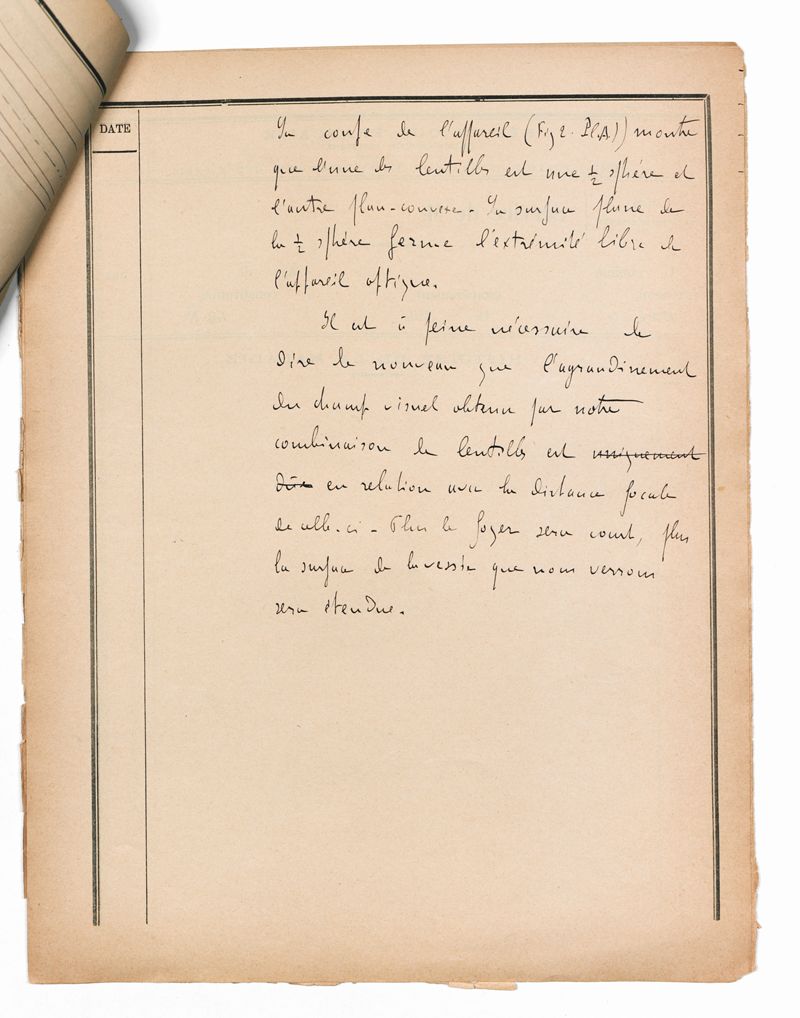 DATE
La coupe de l'appareil (Fig 2. Pl. A) montre
que l'une des lentilles est une ½ sphère et
l'autre plan-convexe. La surface plane de
la ½ sphère ferme l'extrémité libre de
l'appareil optique.
Il est à peine nécessaire de
dire de nouveau que l'agrandissement
du champ visuel obtenu par notre
combinaison de lentilles est uniquement
due en relation avec la distance focale
de celle-ci. Plus le foyer sera court, plus
la surface de la vessie que nous verrons
sera étendue.